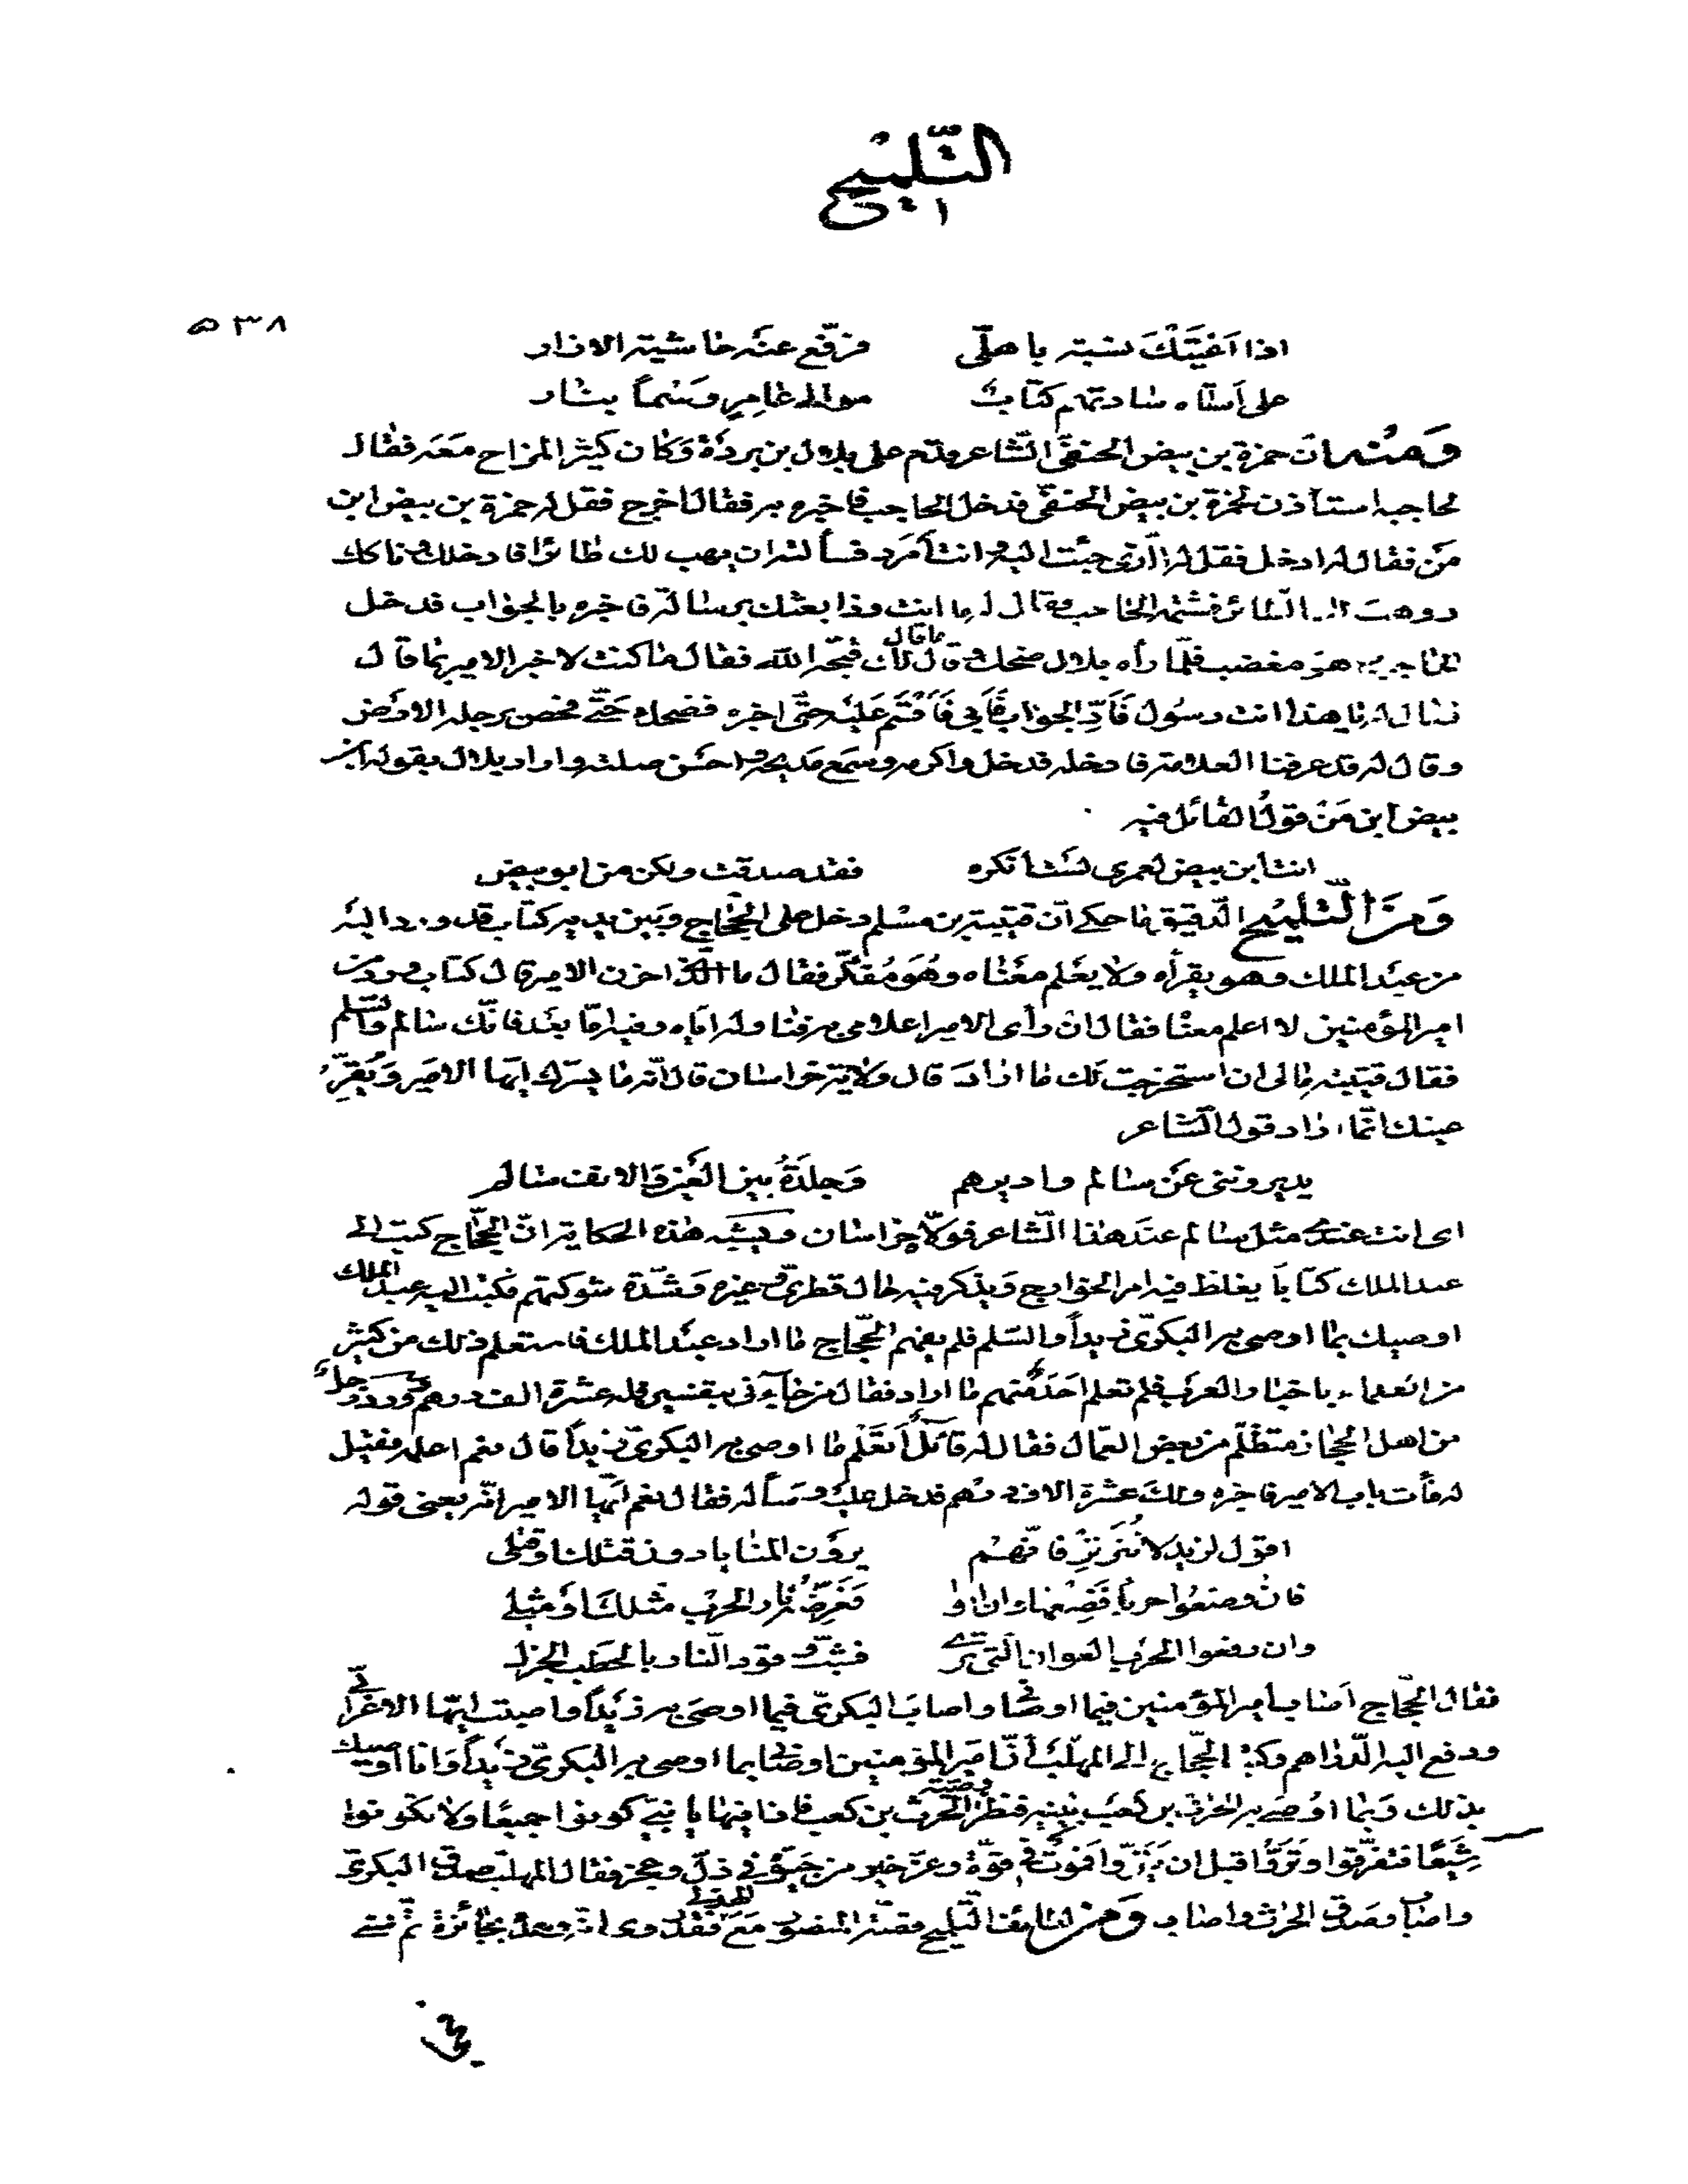 التلميح
٥٣٨
اذا اعيتك نسبة باهلي فرفع عنه حاشية الازار
على أستاه سادتهم كتاب موالى عامر وسما بنار
ومنه ان حمزة بن بيض الحنفى الشاعر قدم على بلال بن بردة وكان كثير المزاح معه فقال
لحاجبه استأذن لحمزة بن بيض الحنفى فدخل الحاجب فاخبره به فقال اخرج فقل له حمزة بن بيض ابن
من فقال له ادخل فقل له الذى جئت اليه وانت أمرد فسألته ان يهب لك طائرا فادخلك وناكك
ووهب لك الطائر فشتمه الحاجب وقال له ما انت وذا بعثك برسالة فاخبره بالجواب فدخل
الحاجب وهو مغضب فلما رأه بلال ضحك وقال ما قال لك قبحه الله فقال ما كنت لاخبر الامير بما قال
فقال له يا هذا انت رسول فأد الجواب فأبى فأقسم عليه حتى اخبره فضحك حتى فحص برجله الارض
وقال له قد عرفنا العلامة فادخله فدخل واكرمه وسمع مديحه واحسن صلته واراد بلال بقوله ابن
بيض ابن من قول القائل فيه
انت ابن بيض لعمرى لست أنكره فقد صدقت ولكن من ابو بيض
ومن التلميح الدقيق ما حكى ان قتيبة بن مسلم دخل على الحجاج وبين يديه كتاب قد ورد اليه
من عبد الملك وهو يقرأه ولا يعلم معناه وهو مفكر فقال ما الذى احزن الامير قال كتاب ورد من
امير المؤمنين لا اعلم معناه فقال ان رأى الامير اعلامى به فناوله اياه وفيه اما بعد فانك سالم والسلم
فقال قتيبة مالى ان استخرجت لك ما اراد قال ولاية خراسان قال انه ما يسرك ايها الامير ويقر
عينك انما اراد قول الشاعر
يديروننى عن سالم واديرهم وجلدة بين العين والانف سالم
اى انت عندى مثل سالم عند هذا الشاعر فولاه خراسان ويشبه هذه الحكاية ان الحجاج كتب الى
عبد الملك كتابا يغلظ فيه امر الخوارج ويذكر فيه حال قطرى وغيره وشدة شوكتهم فكتب اليه عبد الملك
اوصيك بما اوصى به البكرى زيدا والسلم فلم يفهم الحجاج ما اراد عبد الملك فاستعلم ذلك من كثير
من العلماء باخبار العرب فلم تعلم احد منهم ما اراد فقال من جاءنى بتفسيره فله عشرة الف درهم وورد رجل
من اهل الحجاز متظلم من بعض العمال فقال له قائل أتعلم ما اوصى به البكرى زيدا قال نعم اعلمه فقيل
له فأت باب الامير فاخبره ولك عشرة الاف درهم فدخل عليه وسأله فقال نعم ايها الامير انه يعنى قوله
اقول لزيد لا تترتر فانهم يرون المنايا دون قتلك او قتلى
فان وضعوا حربا فضعها وان ابوا فعرضة نار الحرب مثلك او مثلى
وان رفعوا الحرب العوان التى ترى فشب وقود النار بالحطب الجزل
فقال الحجاج اصاب أمير المؤمنين فيما اوصى واصاب البكرى فيما اوصى به زيدا واصبت ايها الاعرابى
ودفع اليه الدراهم وكتب الحجاج الى المهلب أن أمير المؤمنين اوصانى بما اوصى به البكرى زيدا وانا اوصيك
بذلك وبما اوصى به الحرث بن كعب بنيه فنظر وصية الحرث بن كعب فاذا فيها يا بنى كونوا جميعا ولا تكونوا
شيعا فتفرقوا وبزوا قبل ان تبزوا فموت فى قوة وعز خير من حيوة فى ذل وعجز فقال المهلب صدق البكرى
واصاب وصدق الحرث واصاب ومن لطائف التلميح قصة المنصور مع الهذلى فقد روى انه وعده بجائزة ثم نسى